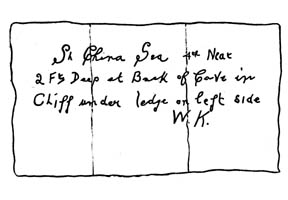 Sh China Sea Near
2 Ft Deep at Back of Cave in
Cliff under ledge on left side
W. K.